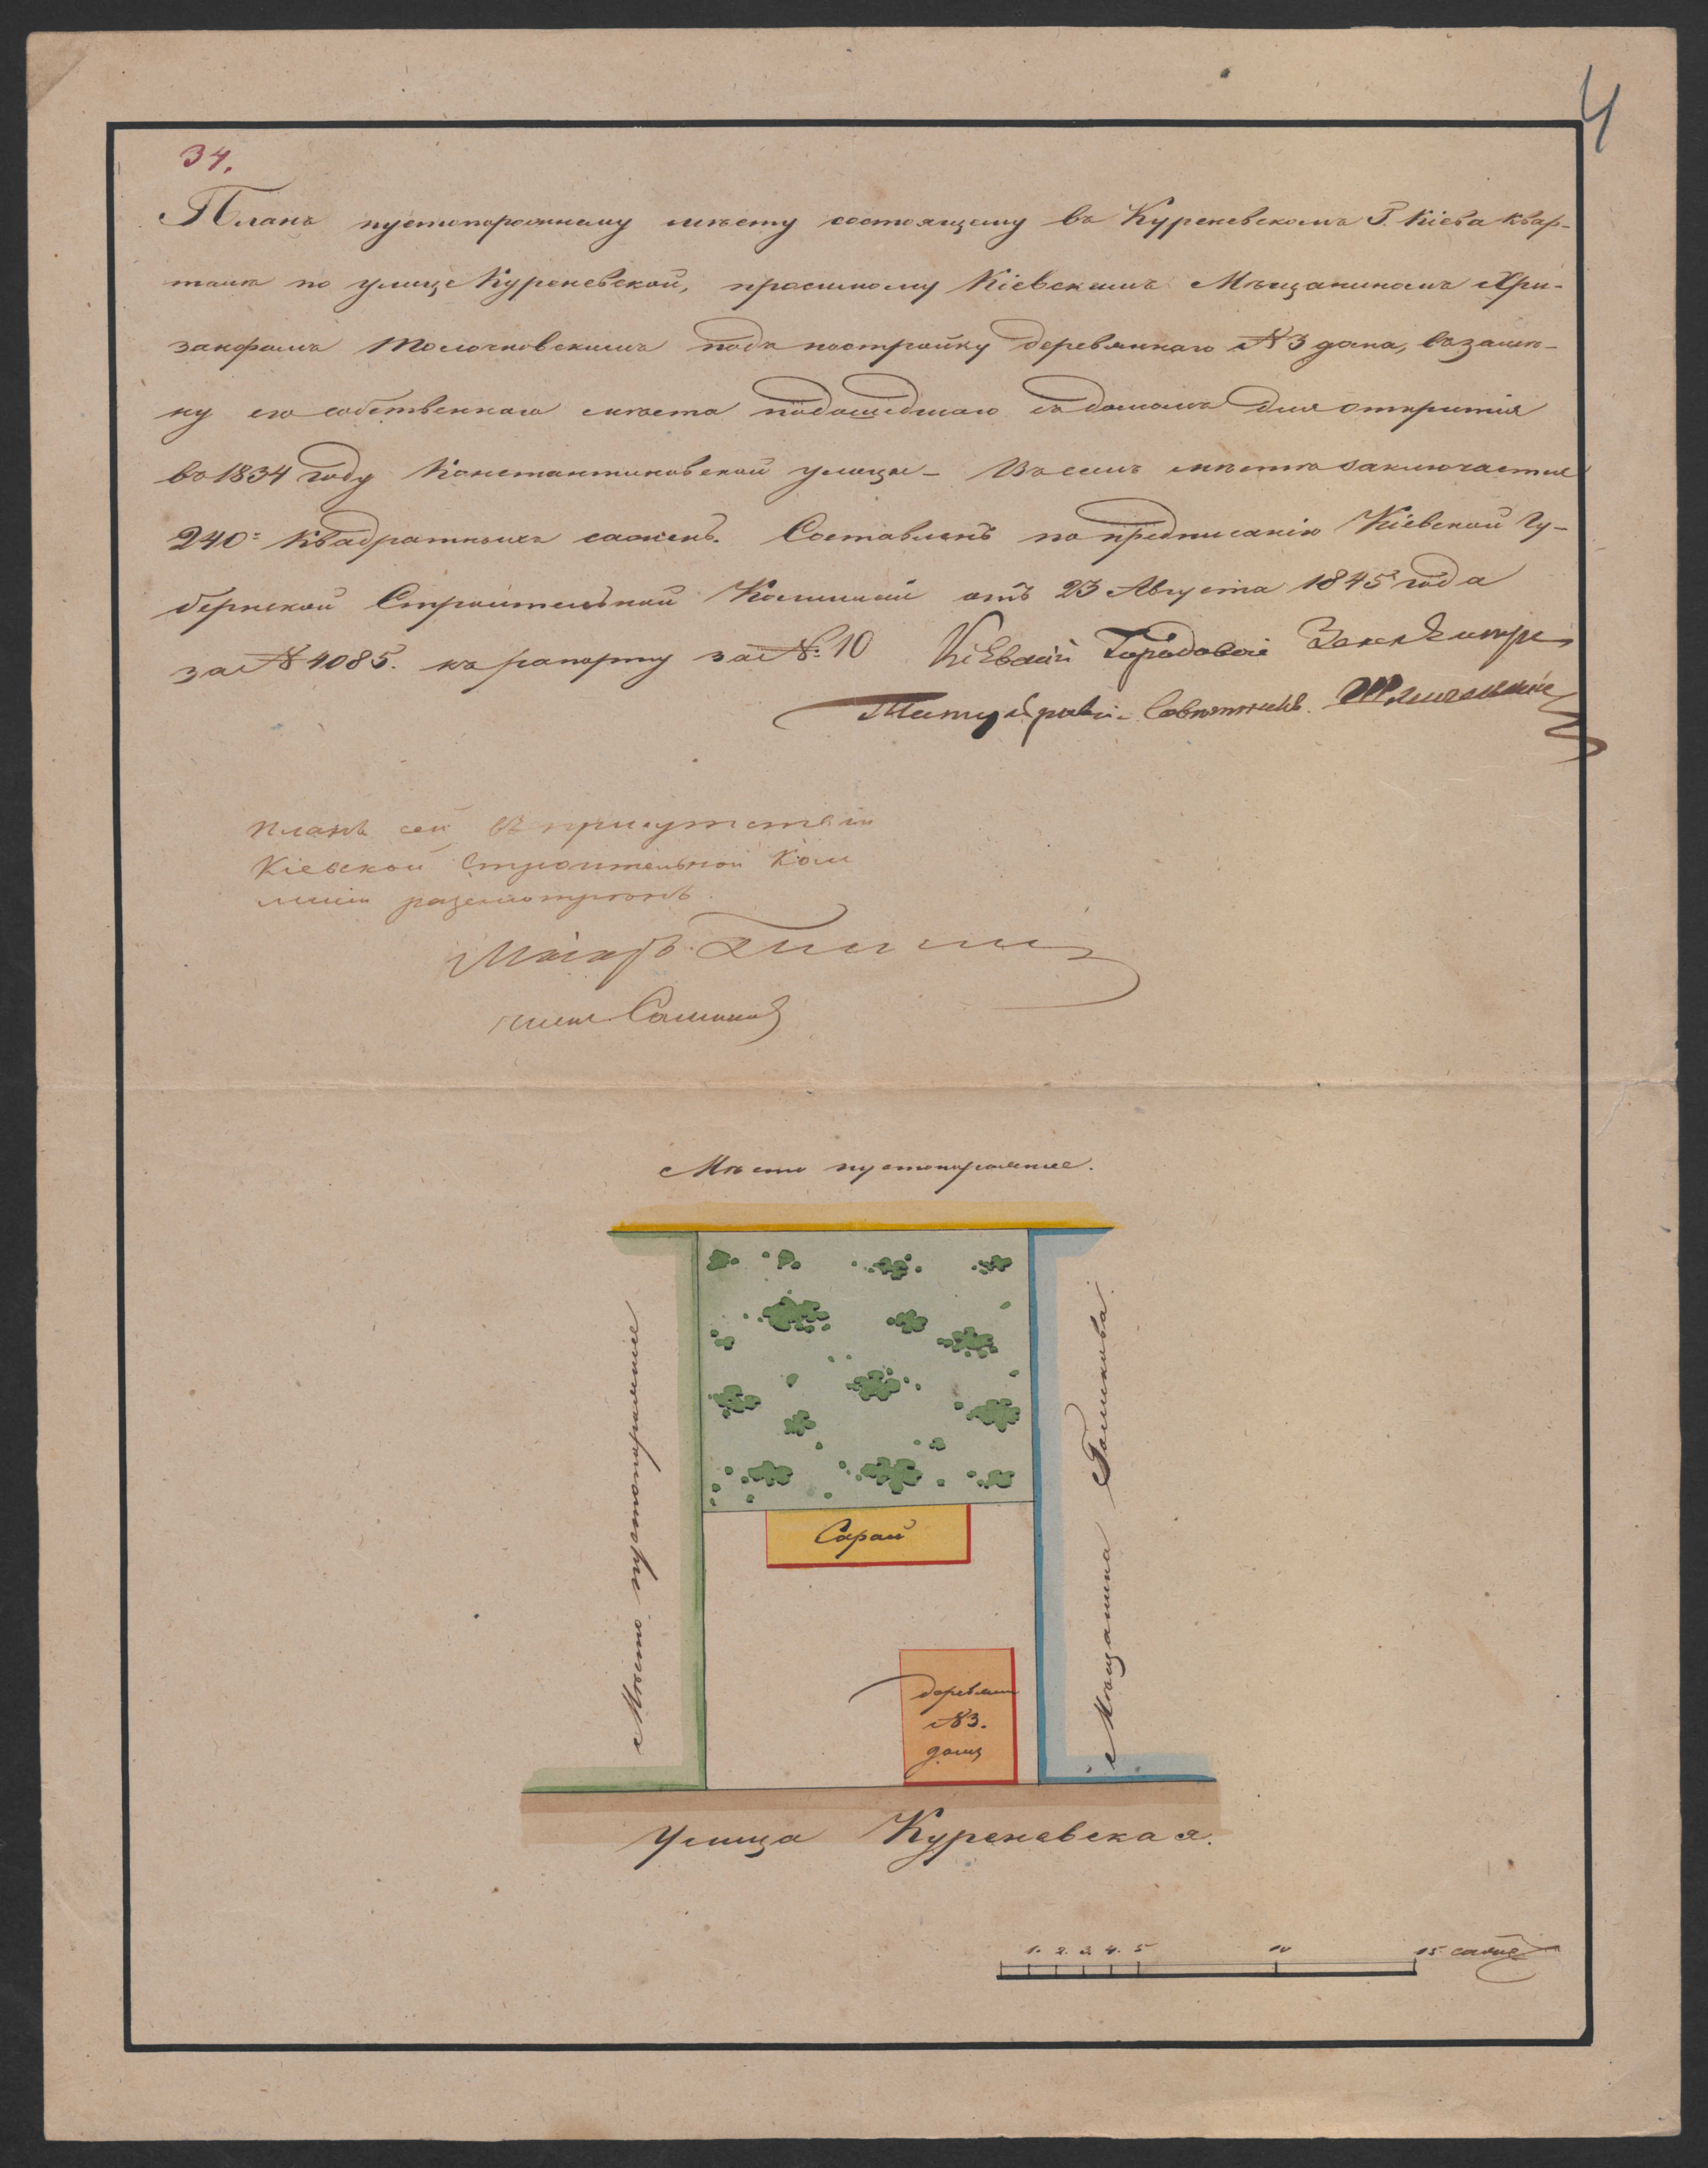 4
34.
Планъ пустопорожнему мѣсту состоящему въ Куреневскомъ Г. Кіева квар-
талѣ по улицѣ Куреневской, просимому Кіевскимъ Мѣщаниномъ Хри-
занфомъ подъ постройку деревяннаго № 3 дома, взамѣ-
ну его собственнаго мѣста подошедшаго съ домомъ для открытія
въ 1834 году Константиновской улицы – Въ семъ мѣстѣ заключается
240: квадратныхъ сажень. Составленъ по предписанію Кіевской Гу-
бернской Строительной Коммисіи отъ 23 Августа 1845 года
за № 4085. къ рапорту за № 10 Кіевскій Городовой Землемѣръ
Титулярный Совѣтникъ
Планъ сей въ присутствіи
Кіевской Строительной Ком
мисіи разсмотрѣнъ.
Маіоръ
Мѣсто пустопорожнее.
Мѣсто пустопорожнее
Мѣщанина
Сарай
деревян
№3.
домъ
Улица Куреневская.
1. 2. 3. 4. 5 10 15 саженъ